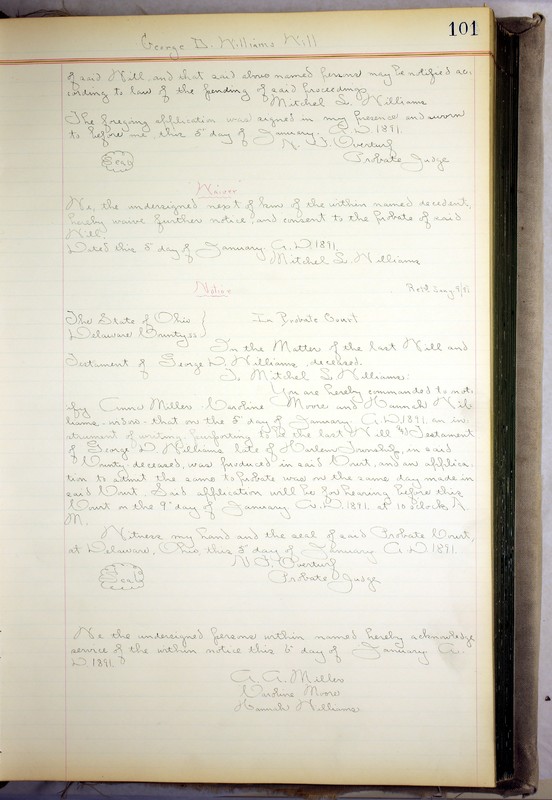 101
George D. Williams Will
of said Will, and that said above named persons may be notified ac-
cording to law of the pending of said proceedings.
Mitchel S. Williams
The foregoing application was signed in my presence and sworn
to before me, this 5" day of January, A.D. 1891.
N. F. Overturf
Seal
Probate Judge
Waiver
We, the undersigned next of kin of the within named decedent,
hereby waive further notice, and consent to the probate of said
Will.
Dated this 5 day of January A.D. 1891.
Mitchel S. Williams
Notice
The State of Ohio } In Probate Court
Delaware County ss
In the Matter of the last Will and
Testament of George D. Williams, deceased.
To Mitchel S. Williams:
You are hereby commanded to noti-
fy Anna Miller Caroline Moore and Hannah Wil-
liams widow that on the 5" day of January A.D. 1891. an in-
strument of writing, purporting to be the last Will & Testament
of George D. Williams late of Harlem Township, in said
County, deceased, was produced in said Court, and an applica-
tion to admit the same to probate was on the same day made in
said Court. Said application will be for hearing before this
Court on the 9" day of January A.D. 1891. at 10 o'clock A.
M.
Witness my hand and the seal of said Probate Court,
at Delaware, Ohio, this 5" day of January A.D. 1891.
N. F. Overturf
Seal
Probate Judge
We the undersigned persons within named hereby acknowledge
service of the within notice this 6" day of January A.
D. 1891.
A. A. Miller
Caroline Moore
Hannah Williams